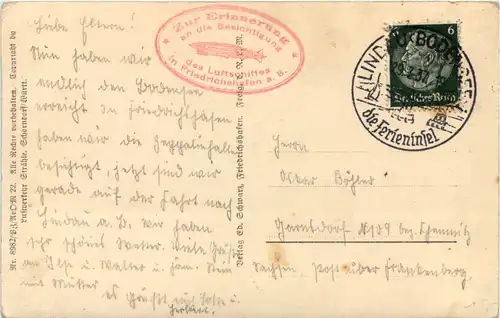 Liebe Eltern!
Nun haben wir
endlich den Bodensee
erreicht in Friedrichshafen
haben wir die Zeppelinhalle
besichtigt, jetzt sind wir
gerade auf der Fahrt nach
Lindau a. B. wir haben
sehr schönes Wetter. Viele Grüße
an Ilse u. Walter u. Fam.
und Mutter es grüßt
Herbert.
Zur Erinnerung
an die Besichtigung
des Luftschiffes
in Friedrichshafen a. B.
LINDAU BODENSEE
die Ferieninsel
6
Deutsches Reich
Herrn
Oskar Böhler
Garnsdorf No 109 bez. Chemnitz
Sachsen Post über Frankenberg.
Alle Rechte vorbehalten. Copyright by
Luftverkehr Strähle, Schorndorf-Württ.
Verlag Ed. Schwarz, Friedrichshafen.